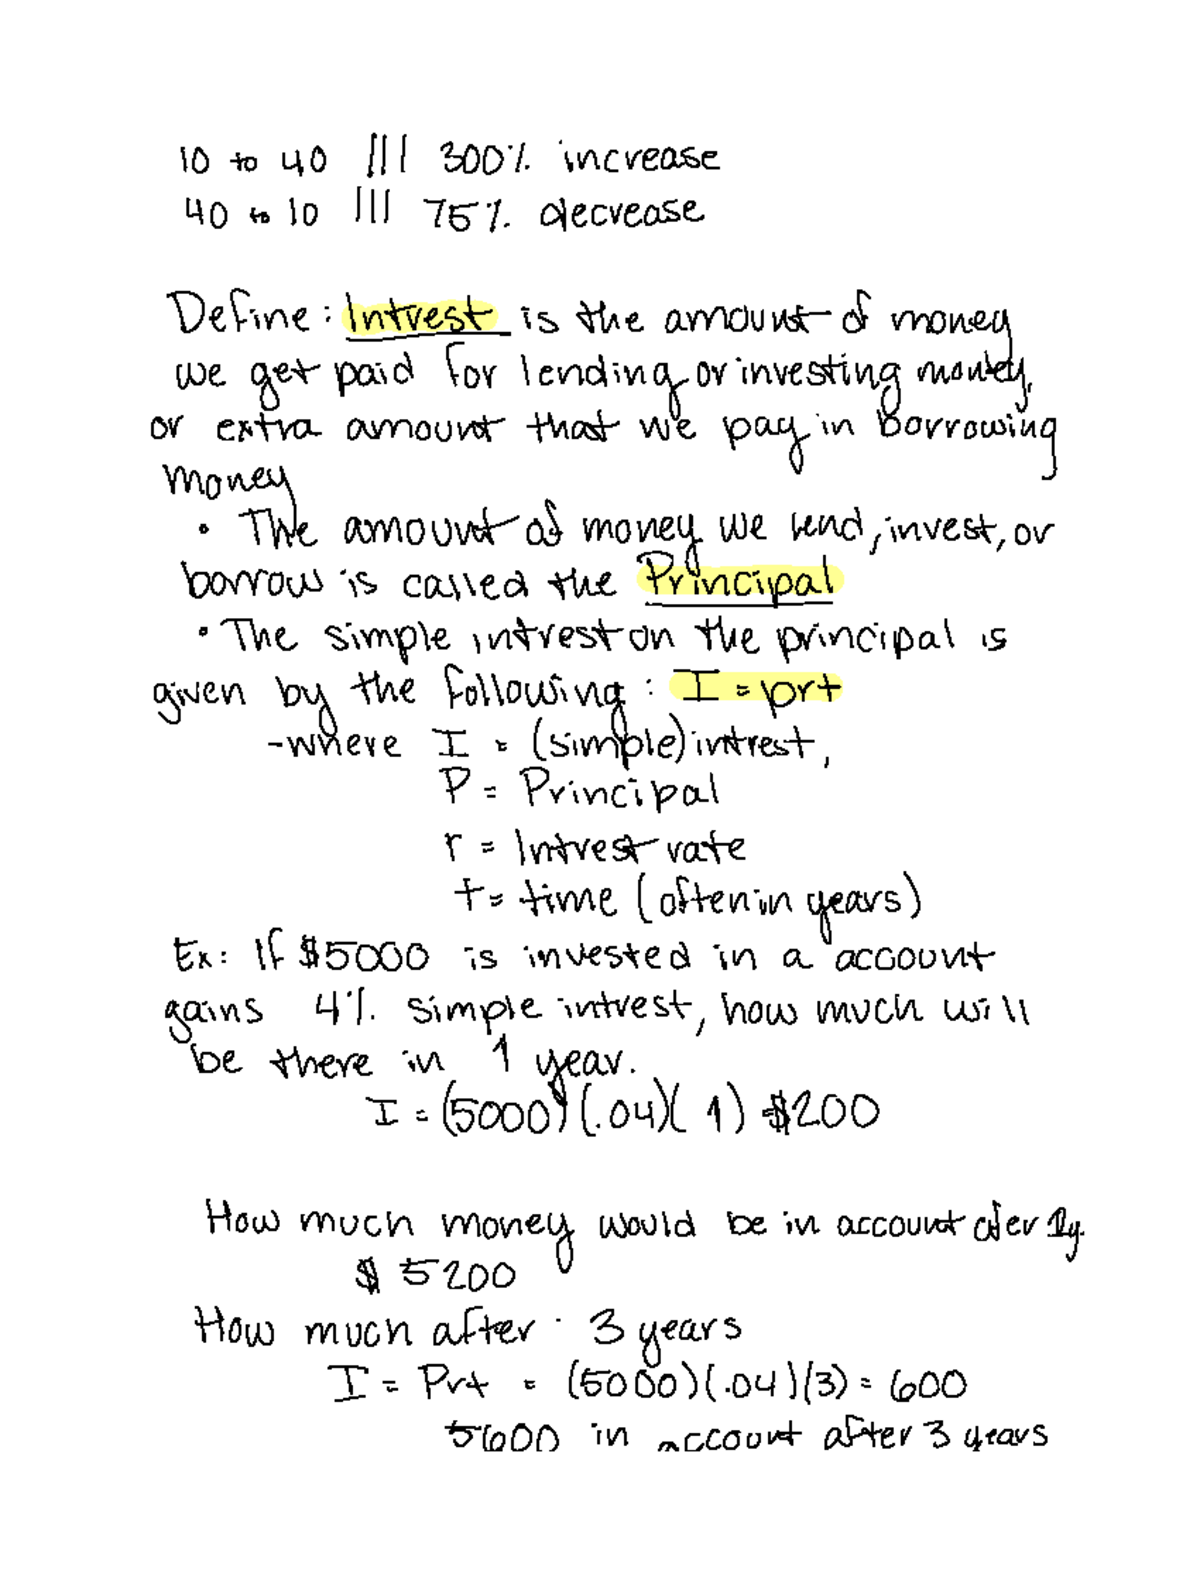 10 to 40 ||| 300% increase
40 to 10 ||| 75% decrease
Define: Intrest is the amount of money
we get paid for lending or investing money,
or extra amount that we pay in borrowing
money
• The amount of money we lend, invest, or
borrow is called the Principal
• The simple intrest on the principal is
given by the following: I = prt
-where I = (simple) intrest,
P = Principal
r = Intrest rate
t = time (often in years)
Ex: If $5000 is invested in a account
gains 4% simple intrest, how much will
be there in 1 year.
I = (5000)(.04)(1) = $200
How much money would be in account after 1y.
$ 5200
How much after 3 years
I = Prt = (5000)(.04)(3) = 600
5600 in account after 3 years